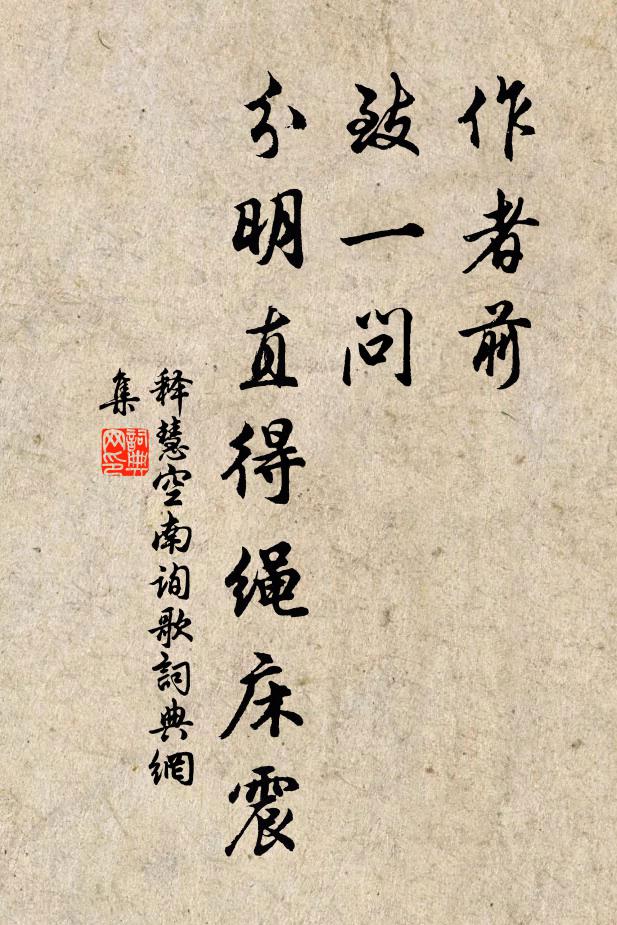 作者前
致一问
分明直得绳床震
释慧空南询歌詞典網
集
詞典网印